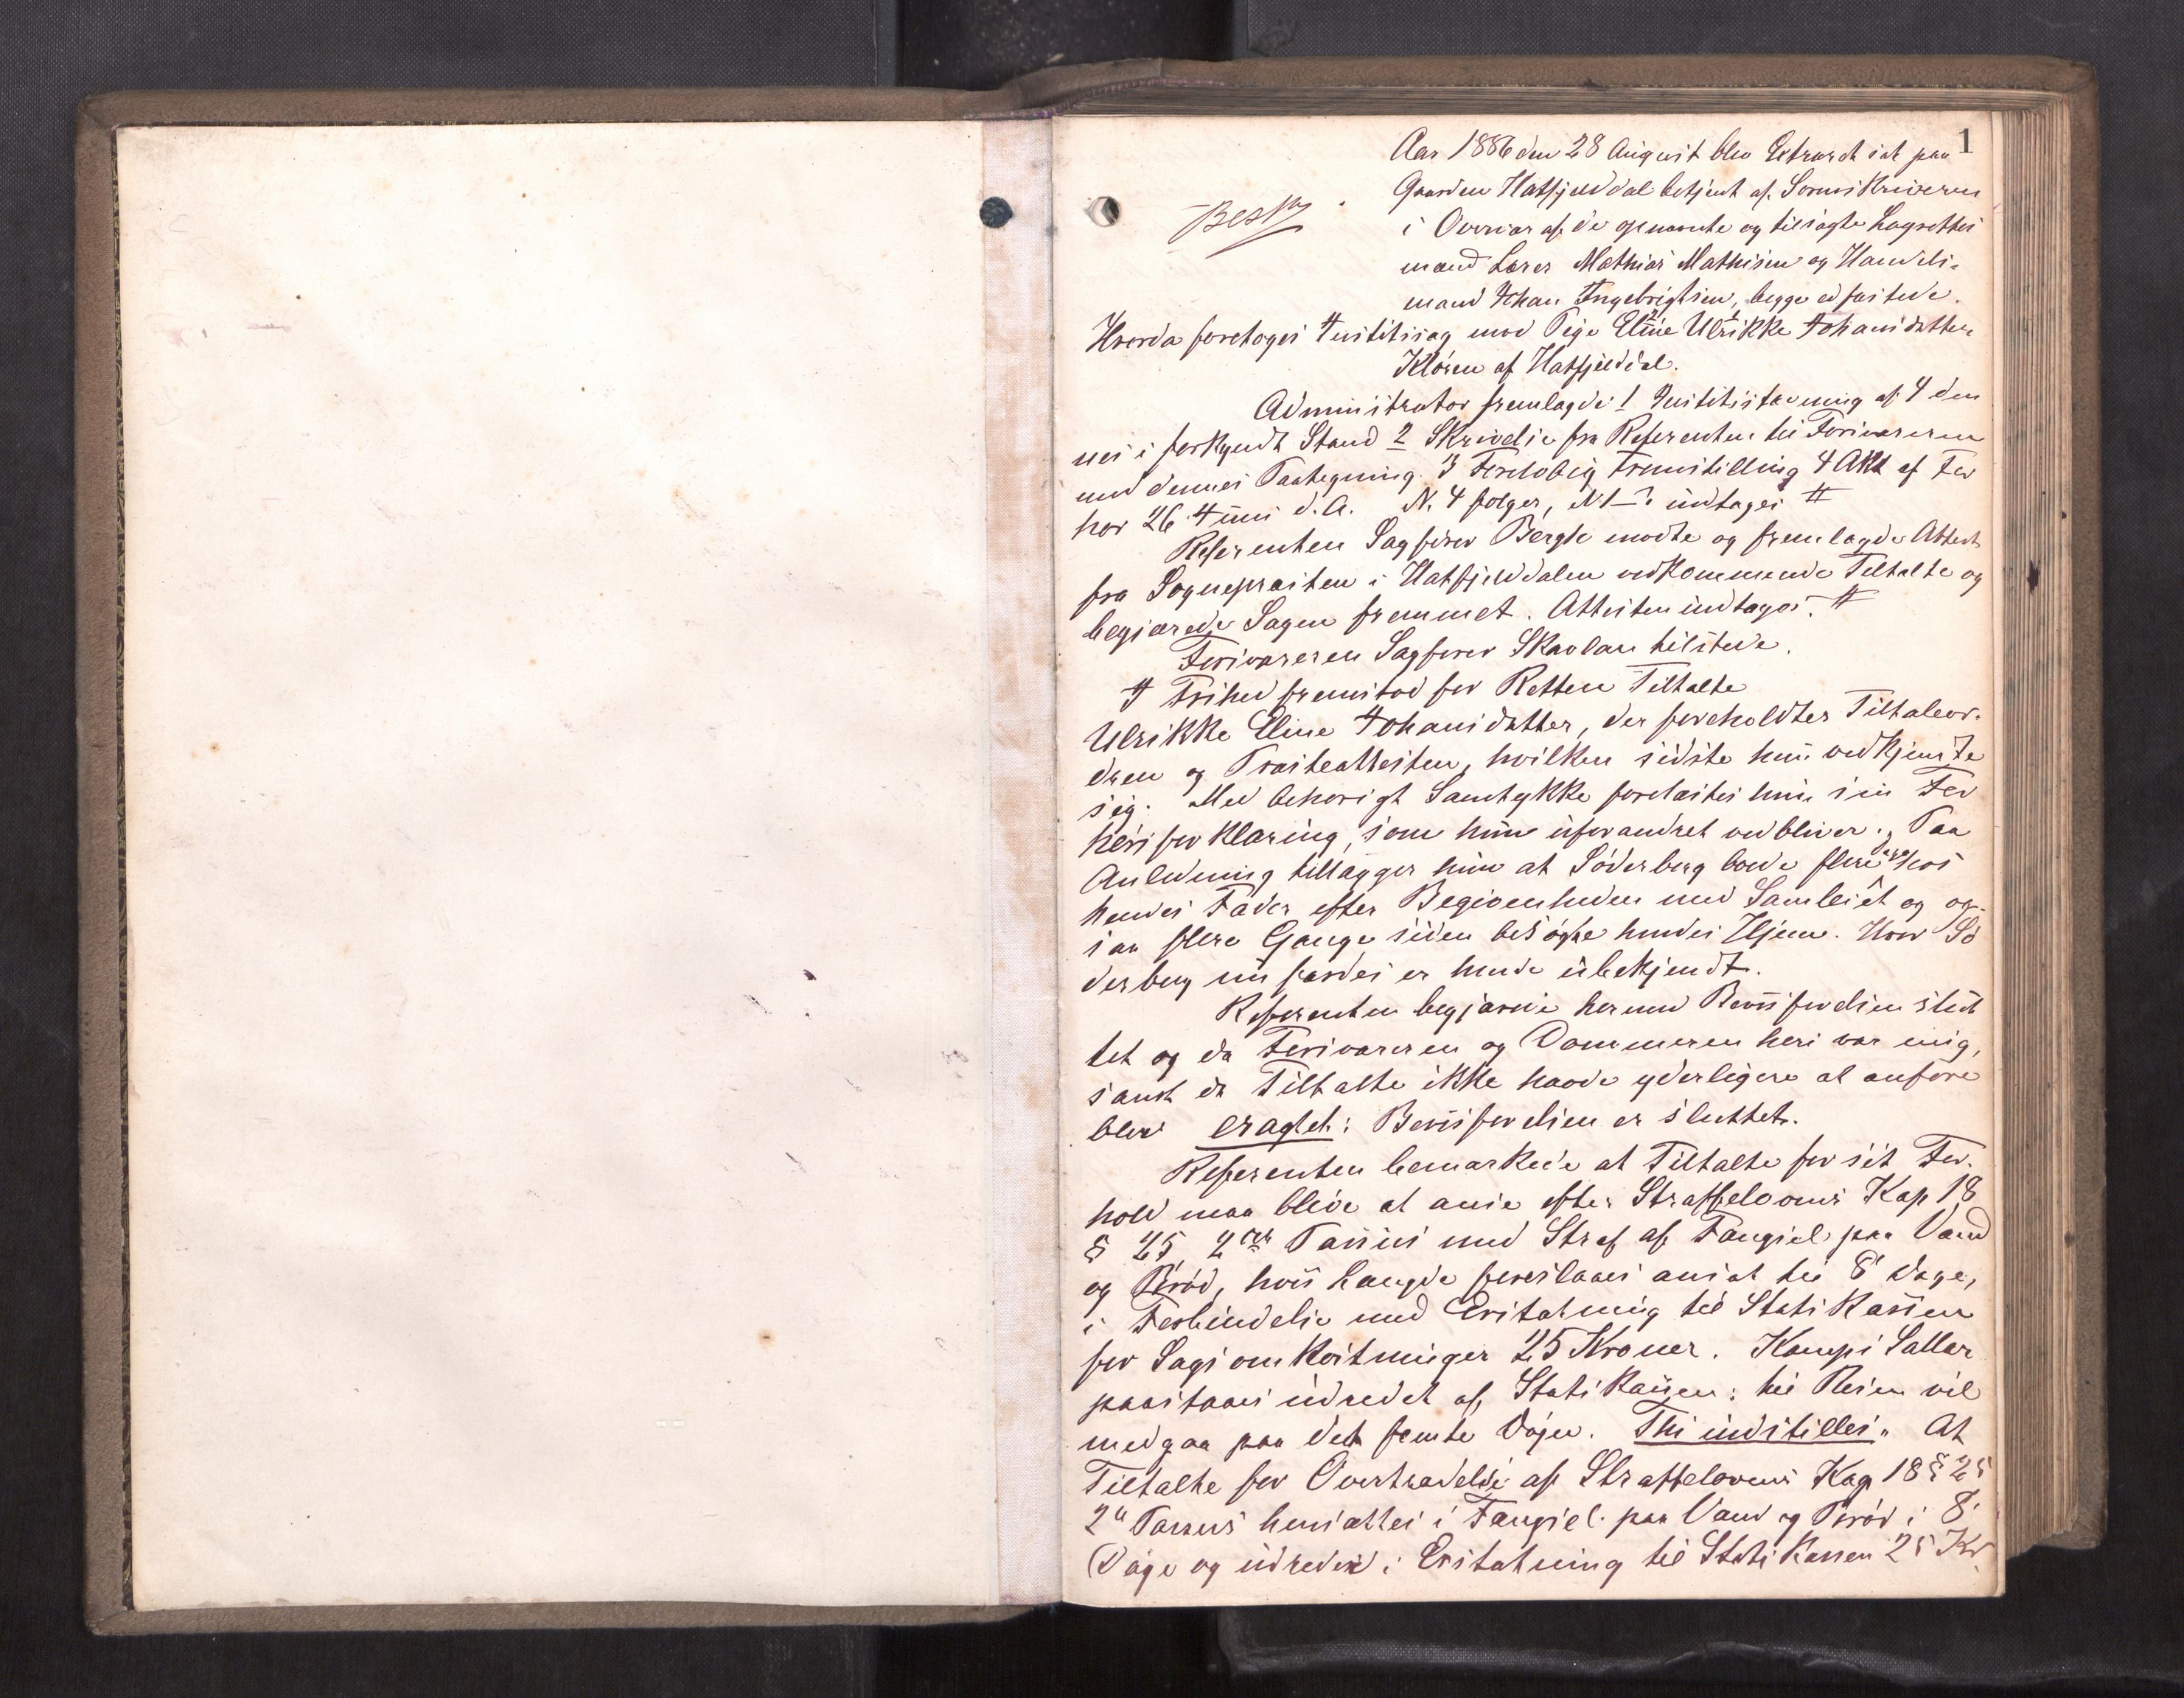 1
Aar 1886 den 28 August blev Extraret sat paa
Gaarden Hatfjelddal betjent af Sorenskriveren
i Overvær af de opnævnte og tilsagte Lagrettes
mænd Lærer Mathias Mathisen og Handels-
mand Johan Ingebrigtsen, begge edfæstede.
Hvorda foretoges Justitssag mod Pige Eline Ulrikke Johansdatter
Kløven af Hatfjelddal.
Administrator fremlagde 1 Justitsstævning af 4 den
nes i forkyndt Stand 2 Skrivelse fra Referenten til Forsvareren
med dennes Paategning 3 Foreløbig Fremstilling 4 Akt af For
hør 26 Juni d.A. N. 4 følger, N 1–3 indtages #
Referenten Sagfører Bergh mødte og fremlagde Attest
fra Sognepræsten i Hatfjelddalen vedkommende Tiltalte og
begjærede Sagen fremmet. Attesten indtages. #
Forsvareren Sagfører Skavlan tilstede.
I Frihed fremstod for Retten Tiltalte
Ulrikke Eline Johansdatter, der foreholdtes Tiltaleor-
dren og Præsteattesten, hvilken sidste hun vedkjendte
sig. Med behørigt Samtykke forelæstes hun sin For
hørsforklaring, som hun uforandret vedbliver. Paa
Anledning tillægger hun at Söderberg boede flere hos
hendes Fader efter Begivenheden med Samleiet og og-
saa flere Gange siden besøgte hendes Hjem. Hvor Sö
derberg nu færdes er hende ubekjendt.
Referenten begjærede hermed Bevisførelsen slut
tet og da Forsvareren og Dommeren heri var enig,
samt da Tiltalte ikke havde yderligere at anføre
blev eragtet: Bevisførelsen er sluttet.
Referenten bemærkede at Tiltalte for sit For-
hold maa blive at anse efter Straffelovens Kap 18
§ 25, 2det Passus med Straf af Fængsel paa Vand
og Brød, hvis Længde foreslaaes ansat til 8 Dage,
i Forbindelse med Erstatning til Statskassen
for Sagsomkostninger 25 Kroner. Salær
paastaaes udredet af Statskassen: til Reisen vil
medgaa paa det femte Døgn. Thi indstilles. At
Tiltalte for Overtrædelse af Straffelovens Kap 18 § 25
2" Passus hensættes i Fængsel paa Vand og Brød i 8
Dage og udreder i Erstatning til Statskassen 25 Kr